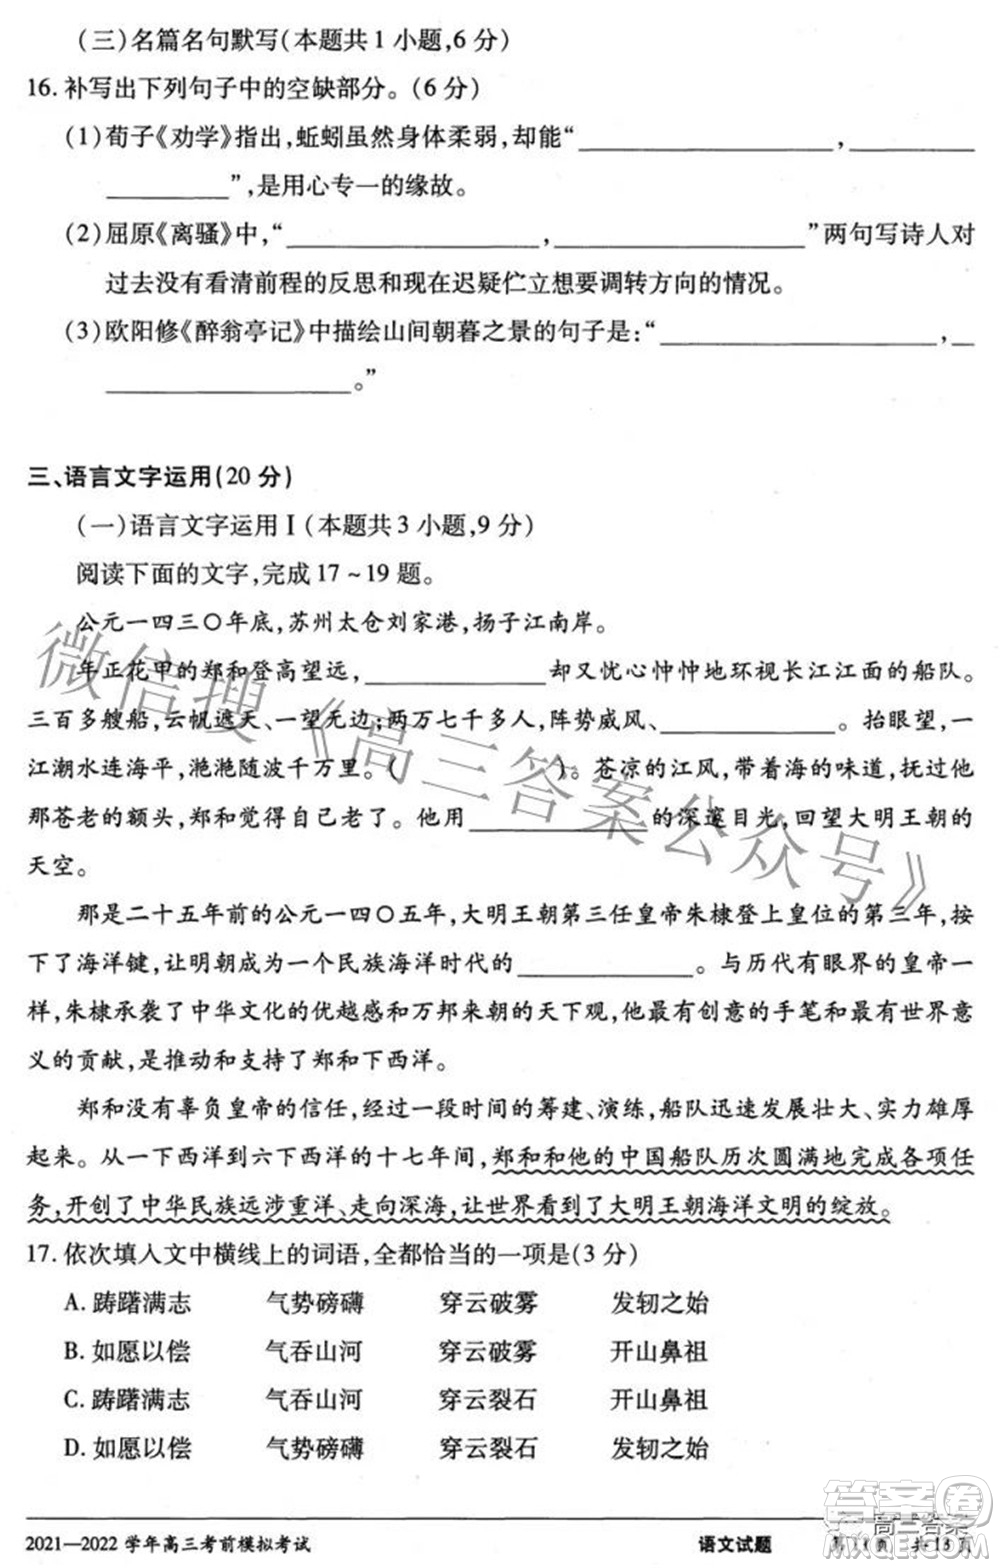 (三)名篇名句默写(本题共1小题,6分)
16. 补写出下列句子中的空缺部分。(6分)
(1)荀子《劝学》指出,蚯蚓虽然身体柔弱,却能“____________,________
________”,是用心专一的缘故。
(2)屈原《离骚》中,“____________,____________”两句写诗人对
过去没有看清前程的反思和现在迟疑伫立想要调转方向的情况。
(3)欧阳修《醉翁亭记》中描绘山间朝暮之景的句子是:“____________,__
____________。”
三、语言文字运用(20分)
(一)语言文字运用Ⅰ(本题共3小题,9分)
阅读下面的文字,完成17~19题。
公元一四三〇年底,苏州太仓刘家港,扬子江南岸。
年正花甲的郑和登高望远,________却又忧心忡忡地环视长江江面的船队。
三百多艘船,云帆遮天、一望无边;两万七千多人,阵势威风、________。抬眼望,一
江潮水连海平,滟滟随波千万里。(        )。苍凉的江风,带着海的味道,吹過
那苍老的额头,郑和觉得自己老了。他用________的深邃目光,回望大明王朝的
天空。
那是二十五年前的公元一四〇五年,大明王朝第三任皇帝朱棣登上皇位的第三年,按
下了海洋键,让明朝成为一个民族海洋时代的________。与历代有眼界的皇帝一
样,朱棣承袭了中华文化的优越感和万邦来朝的天下观,他最有创意的手笔和最有世界意
义的贡献,是推动和支持了郑和下西洋。
郑和没有辜负皇帝的信任,经过一段时间的筹建、演练,船队迅速发展壮大、实力雄厚
起来。从一下西洋到六下西洋的十七年间,郑和和他的中国船队历次圆满地完成各项任
务,开创了中华民族远涉重洋、走向深海,让世界看到了大明王朝海洋文明的绽放。
17. 依次填入文中横线上的词语,全都恰当的一项是(3分)
A. 踌躇满志 气势磅礴 穿云破雾 发轫之始
B. 如愿以偿 气吞山河 穿云破雾 开山鼻祖
C. 踌躇满志 气吞山河 穿云裂石 开山鼻祖
D. 如愿以偿 气势磅礴 穿云裂石 发轫之始
2021—2022学年高三考前模拟考试 语文试题 第11页 共13页
微信搜《高三答案公众号》
答案圈
高三答案